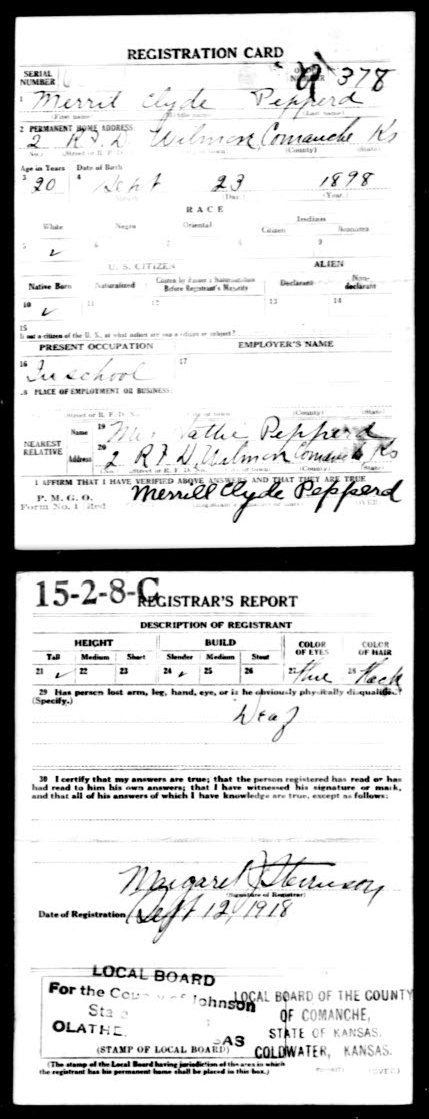 REGISTRATION CARD
SERIAL NUMBER
NUMBER 378
1 Merrit Clyde Pepperd
(First name) (Middle name) (Last name)
2 PERMANENT HOME ADDRESS
2 R.F.D. Wilmore Comanche Ks
(No.) (Street or R. F. D. (County) (State)
Age in Years Date of Birth
3 20 4 Sept 23 1898
(Day.) (Year.)
RACE
White Negro Oriental Indian
Citizen Noncitizen
5 ✓ 6 7 8 9
U. S. CITIZEN ALIEN
Native Born Naturalized Citizen by Father's Naturalization Before Registrant's Majority Declarant Non-declarant
10 ✓ 11 12 13 14
15
If not a citizen of the U. S., of what nation are you a citizen or subject?
PRESENT OCCUPATION EMPLOYER'S NAME
16 In school 17
18 PLACE OF EMPLOYMENT OR BUSINESS:
(Street or R. F. D. (County) (State)
NEAREST RELATIVE
Name 19 Pepperd
Address 20 2 R.F.D. Wilmore Comanche Ks
I AFFIRM THAT I HAVE VERIFIED ABOVE ANSWERS AND THAT THEY ARE TRUE
P. M. G. O.
Form No. 1 Merrill Clyde Pepperd
15-2-8-C
REGISTRAR'S REPORT
DESCRIPTION OF REGISTRANT
HEIGHT BUILD COLOR OF EYES COLOR OF HAIR
Tall Medium Short Slender Medium Stout
21 ✓ 22 23 24 ✓ 25 26 27 Blue 28 Black
29 Has person lost arm, leg, hand, eye, or is he obviously physically disqualified?
(Specify.)
Deaf
30 I certify that my answers are true; that the person registered has read or has
had read to him his own answers; that I have witnessed his signature or mark,
and that all of his answers of which I have knowledge are true, except as follows:
Margaret
(Signature of Registrar)
Date of Registration Sept 12, 1918
LOCAL BOARD
For the County of Johnson
OLATHE
(STAMP OF LOCAL BOARD)
LOCAL BOARD OF THE COUNTY
OF COMANCHE,
STATE OF KANSAS.
COLDWATER, KANSAS.
(The stamp of the Local Board having jurisdiction of the area in which
the registrant has his permanent home shall be placed in this box.)
(OVER)